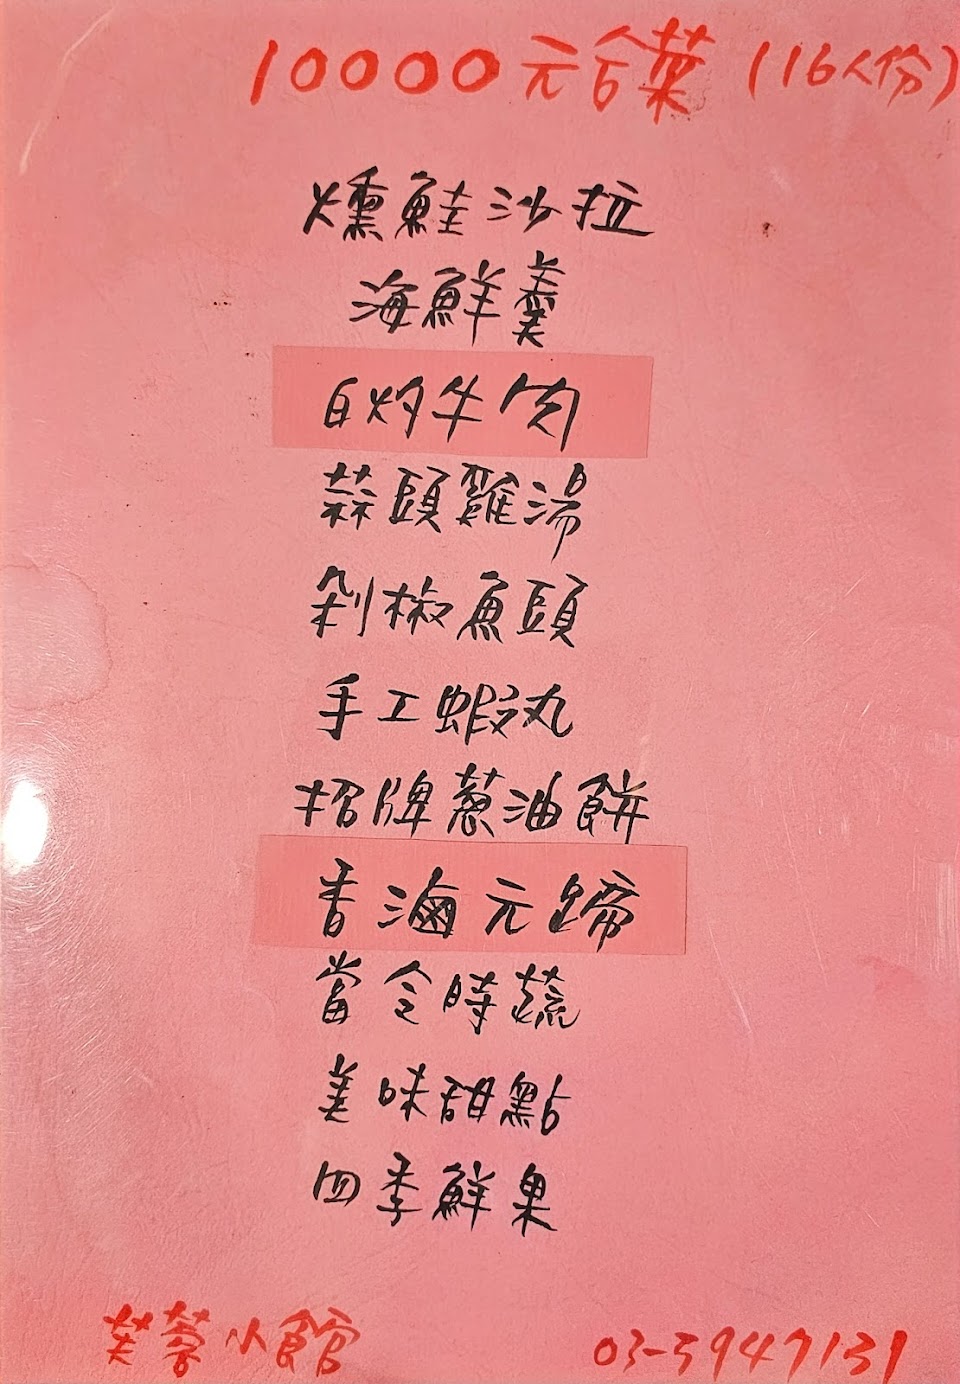 10000元合菜(16人份)
燻鮭沙拉
海鮮羹
白灼牛肉
蒜頭雞湯
剁椒魚頭
手工蝦丸
招牌蔥油餅
香滷元蹄
當令時蔬
美味甜點
四季鮮果
芙蓉小館 03-5947131